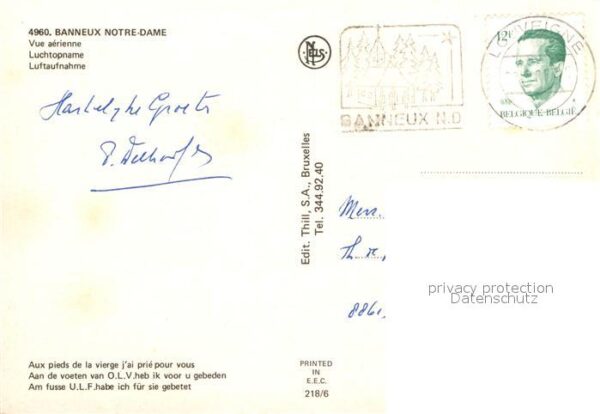 4960. BANNEUX NOTRE-DAME
Vue aérienne
Luchtopname
Luftaufnahme
NELS
BANNEUX N.D
LOUVEIGNE
12F
BELGIQUE-BELGIË
Hartelijke Groeten
Edit. Thill, S.A., Bruxelles
Tel. 344.92.40
Mevr.
privacy protection
Datenschutz
Aux pieds de la vierge j'ai prié pour vous
Aan de voeten van O.L.V.heb ik voor u gebeden
Am fusse U.L.F.habe ich für sie gebetet
PRINTED
IN
E.E.C.
218/6